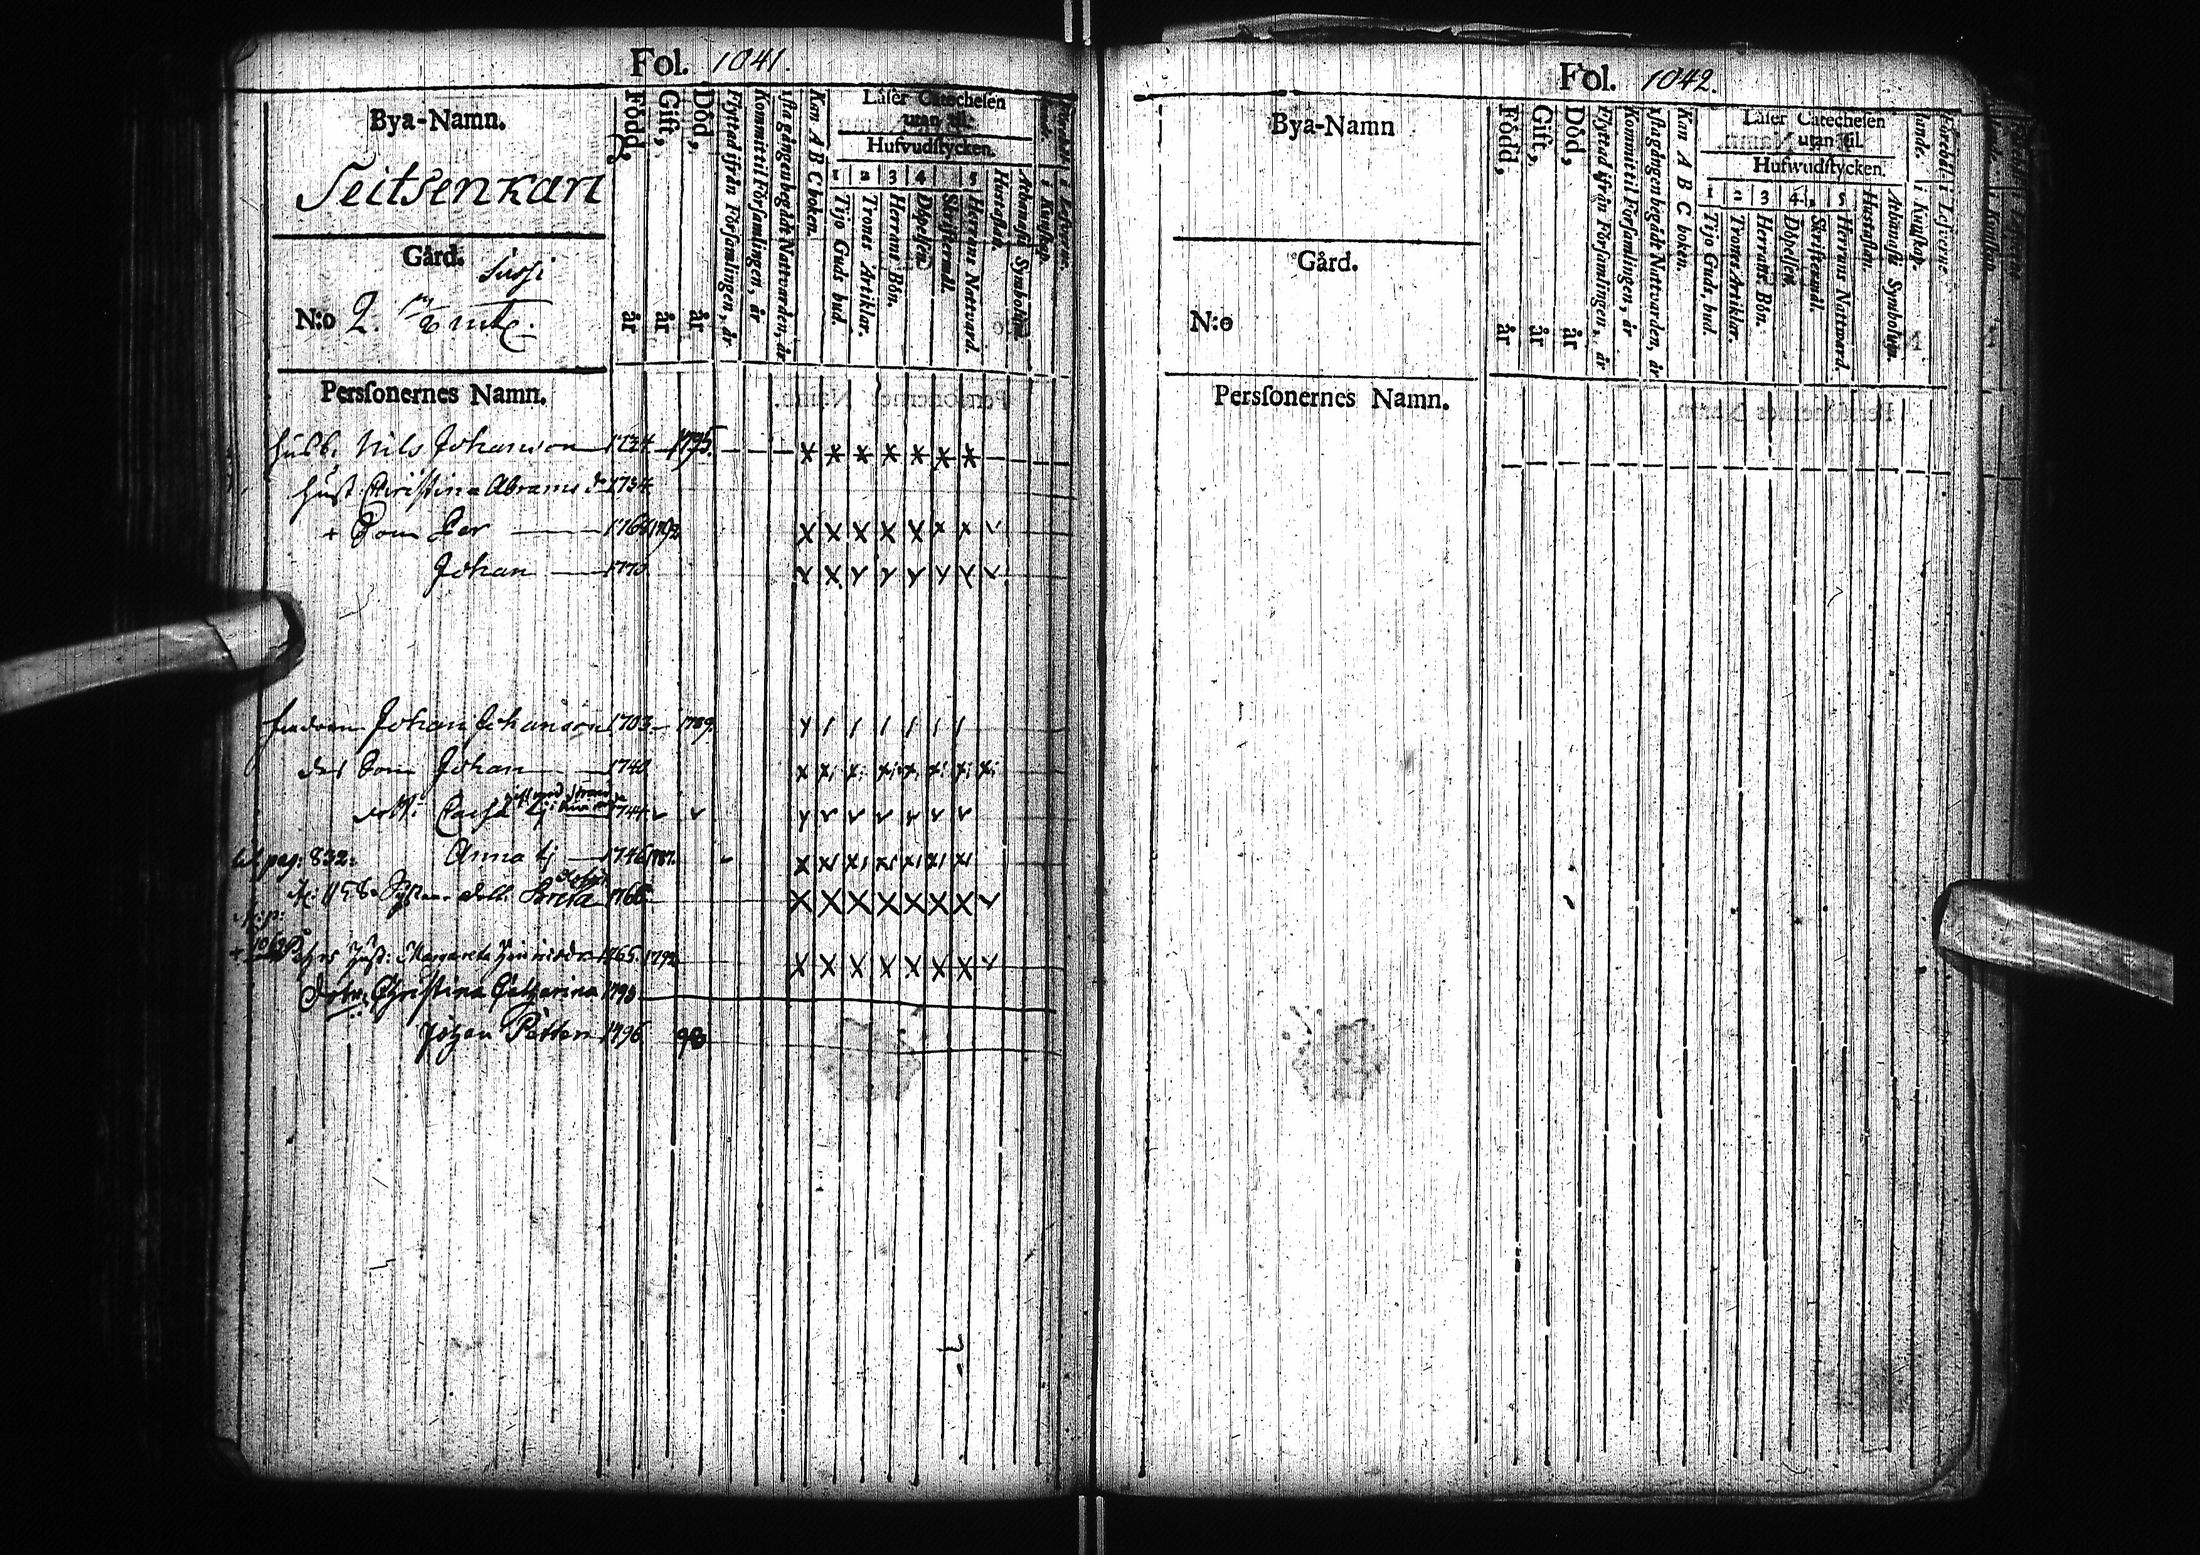 Fol. 1041.
Bya-Namn.
Seitsenkari
Gård.
Sussi
N:o 2.
Personernes Namn.
Född, år
Gift, år
Död, år
Flyttad ifrån Församlingen, år
Kommit til Församlingen, år
1sta gången begådt Nattvarden, år
Kan A B C boken.
Läser Catechesen
utan til.
Hufvudstycken.
1 2 3 4 5
Tijo Guds bud.
Trones Artiklar.
Herrans Bön.
Döpelsen.
Skriftermål.
Herrans Nattvard.
Hustaflan.
Athanasii Symbolum.
i Kunskap.
husb. Nils Johansson 1734 1795.
hust. Christina Abrams dr 1734
+ Son Per 1768 1792
Johan 1770
Johan Johansson 1703 1789.
des Son Johan 1740
dott: Caisa 1744
til pag: 832: Anna 1746 1787.
dott. Greta 1766
hust: Margareta 1765. 1792
Dotr. Christina Catharina 1793
Johan Petter 1796 98
Fol. 1042.
Bya-Namn
Gård.
N:o
Personernes Namn.
Född, år
Gift, år
Död, år
Flyttad ifrån Församlingen, år
Kommit til Församlingen, år
1sta gången begådt Nattvarden, år
Kan A B C boken.
Läser Catechesen
utan til.
Hufwudstycken.
1 2 3 4. 5
Tijo Guds bud.
Trones Artiklar.
Herrans Bön.
Döpelsen.
Skriftermål.
Herrans Nattward.
Hustaflan.
Athanasii Symbolum.
i Kunskap.
i Lefverne.